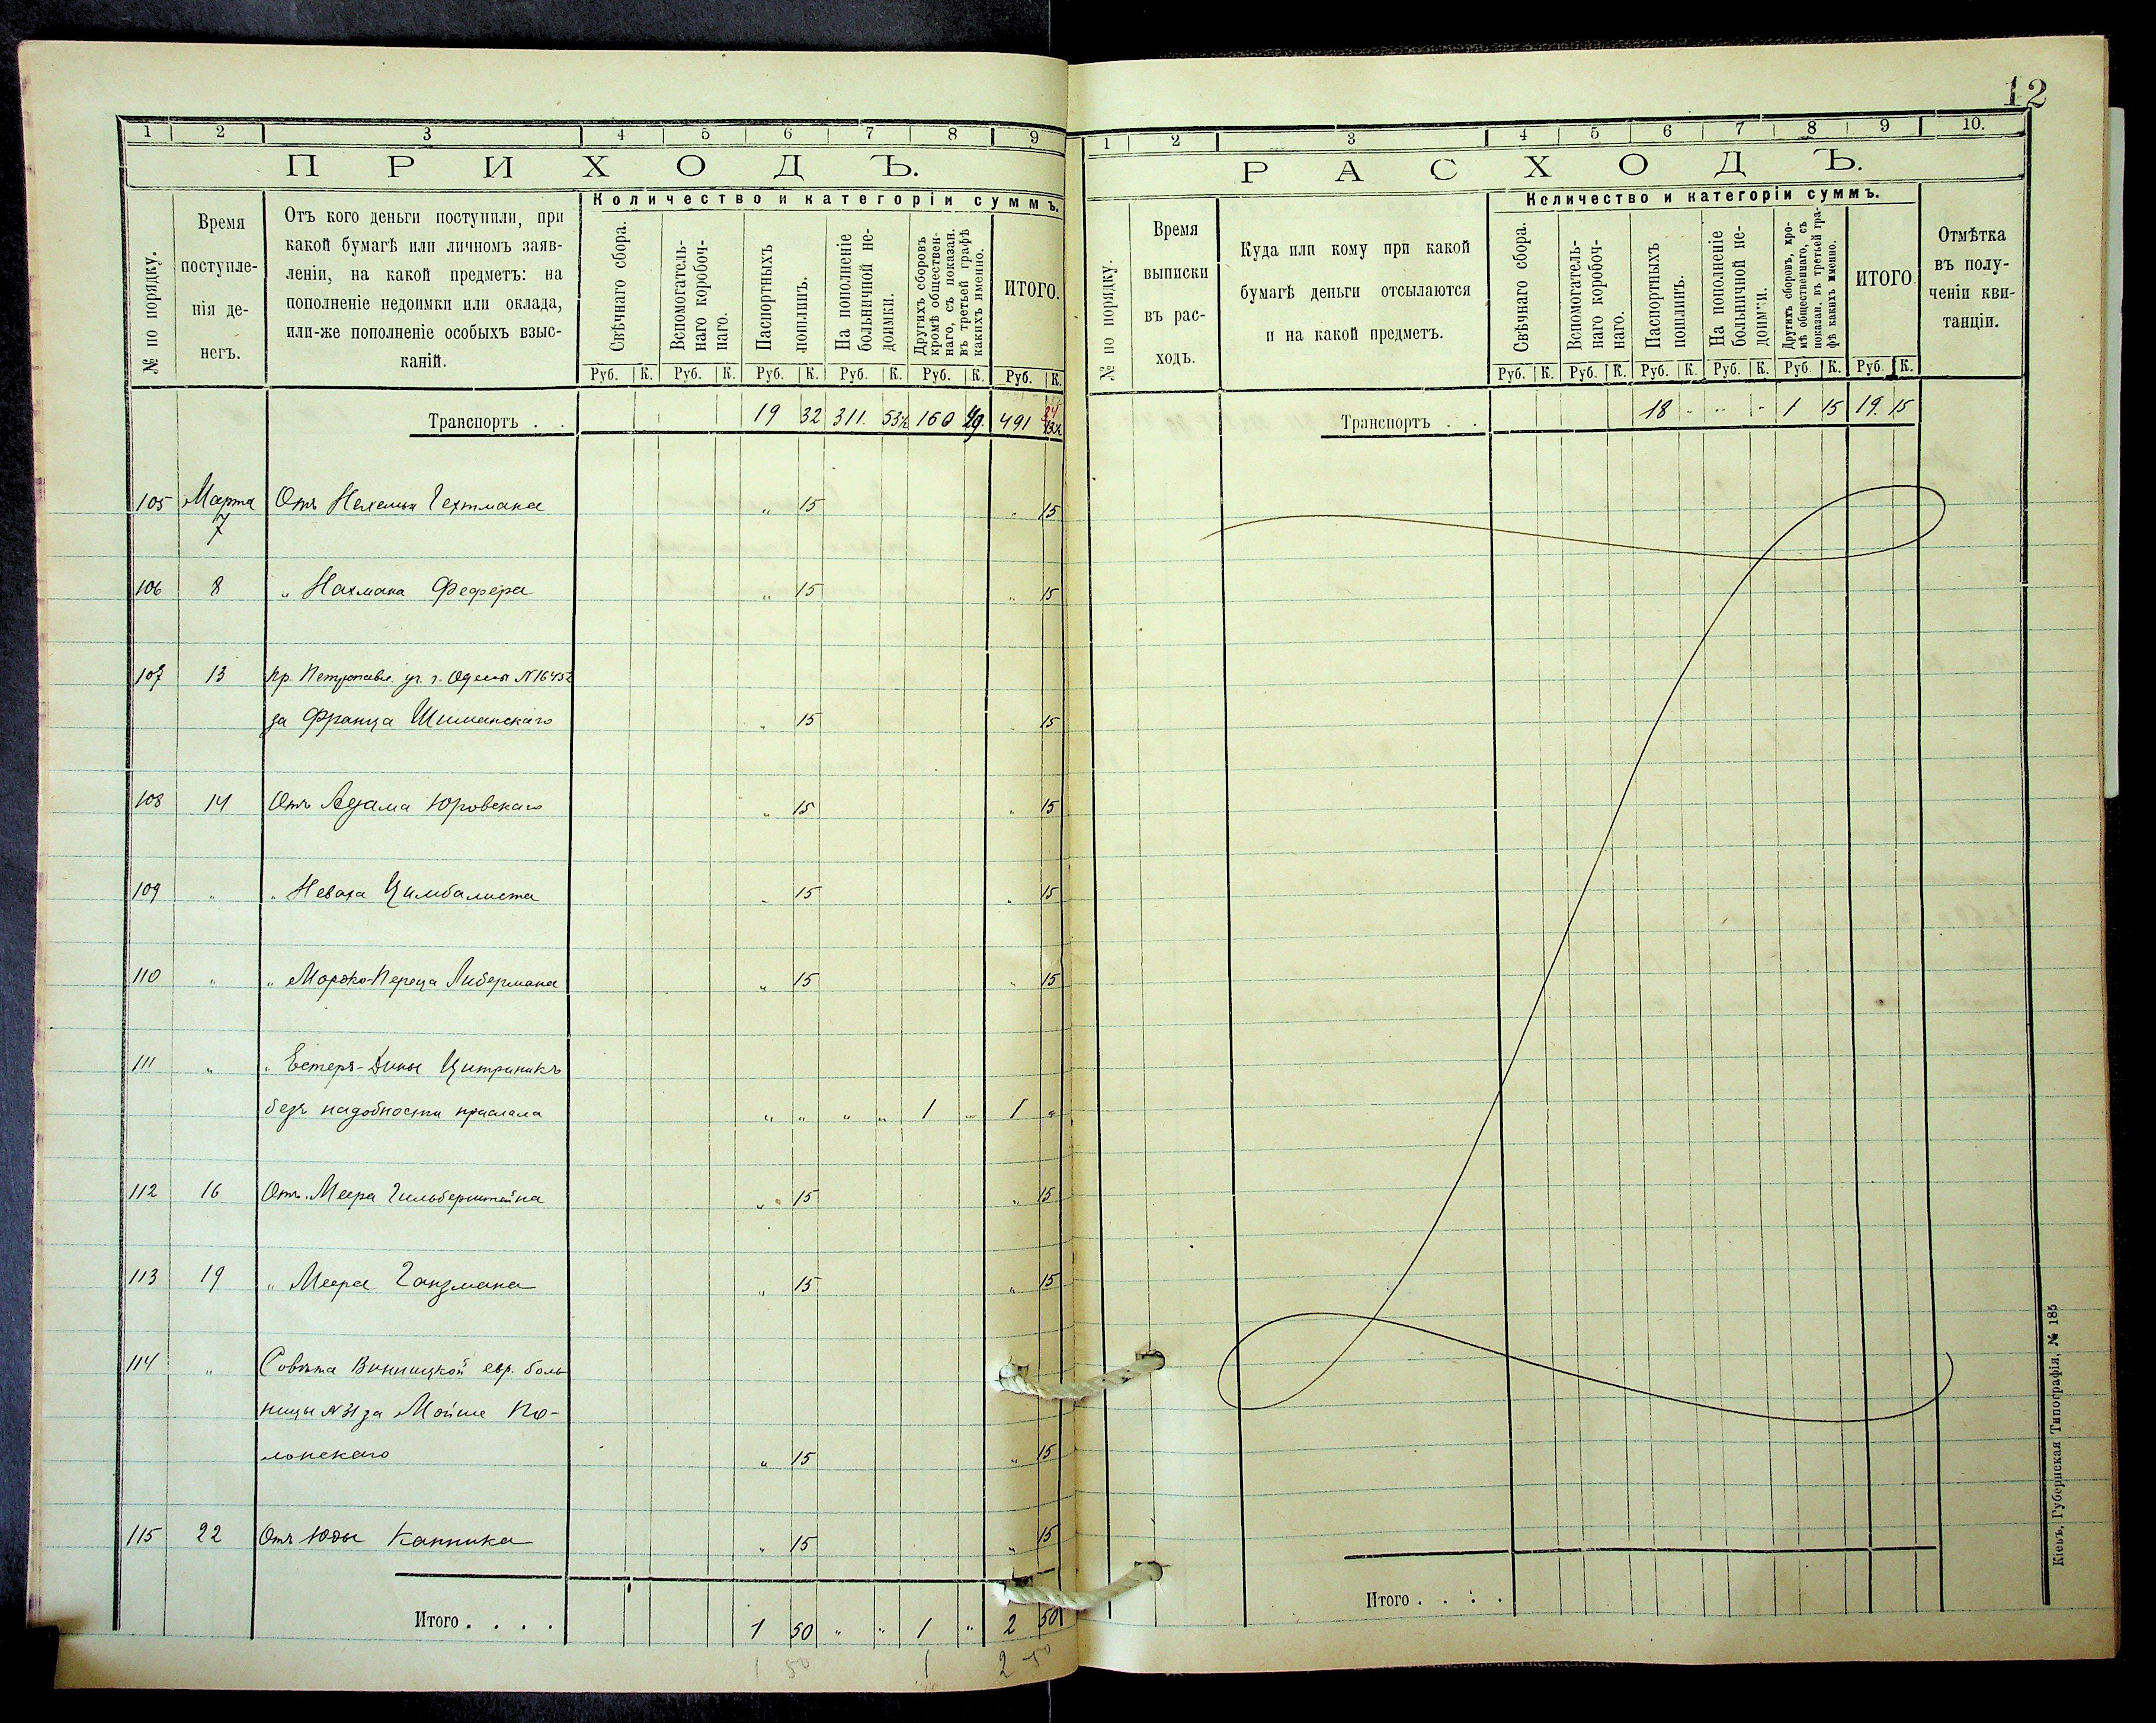 12
1 2 3 4 5 6 7 8 9
ПРИХОДЪ.
№ по порядку.
Время
поступле-
нія де-
негъ.
Отъ кого деньги поступили, при
какой бумагѣ или личномъ заяв-
леніи, на какой предметъ: на
пополненіе недоимки или оклада,
или-же пополненіе особыхъ взыс-
каній.
Количество и категоріи суммъ.
Свѣчнаго сбора.
Вспомогатель-
наго коробоч-
наго.
Паспортныхъ
пошлинъ.
На пополненіе
больничной не-
доимки.
Другихъ сборовъ
кромѣ обществен-
наго, съ показан.
въ третьей графѣ
какихъ именно.
ИТОГО.
Руб. К. Руб. К. Руб. К. Руб. К. Руб. К. Руб. К.
Транспортъ . . 19 32 311. 53½ 160 49 491
105 Марта 7 Отъ Нехемьи Гехтмана " 15 " 15
106 8 " Нахмана Фефера " 15 " 15
107 13 Пр. Петропавл. уч. г. Одессы №16452
за Франца Шиманскаго " 15 " 15
108 14 Отъ Адама Юровскаго " 15 " 15
109 " " Неваха Цимбалиста " 15 " 15
110 " " Мордко-Переца Либермана " 15 " 15
111 " " Естеръ-Дины Цитриникъ
безъ надобности прислала " " " " 1 " 1 "
112 16 Отъ Меера Гильберштейна " 15 " 15
113 19 " Меера Ганзмана " 15 " 15
114 " Совѣта Винницкой евр. боль-
ницы №31 за Мойше По-
лонскаго " 15 " 15
115 22 Отъ Юды Канника " 15 " 15
Итого . . . . 1 50 " " 1 " 2 50
1 50 1 2 50
1 2 3 4 5 6 7 8 9 10.
РАСХОДЪ.
№ по порядку.
Время
выписки
въ рас-
ходъ.
Куда или кому при какой
бумагѣ деньги отсылаются
и на какой предметъ.
Количество и категоріи суммъ.
Свѣчнаго сбора.
Вспомогатель-
наго коробоч-
наго.
Паспортныхъ
пошлинъ.
На пополненіе
больничной не-
доимки.
Другихъ сборовъ, кро-
мѣ общественнаго, съ
показан. въ третьей гра-
фѣ какихъ именно.
ИТОГО
Отмѣтка
въ полу-
ченіи кви-
танціи.
Руб. К. Руб. К. Руб. К. Руб. К. Руб. К. Руб. К.
Транспортъ . . 18 - " - 1 15 19. 15
Итого . . . .
Кіевъ, Губернская Типографія, № 185